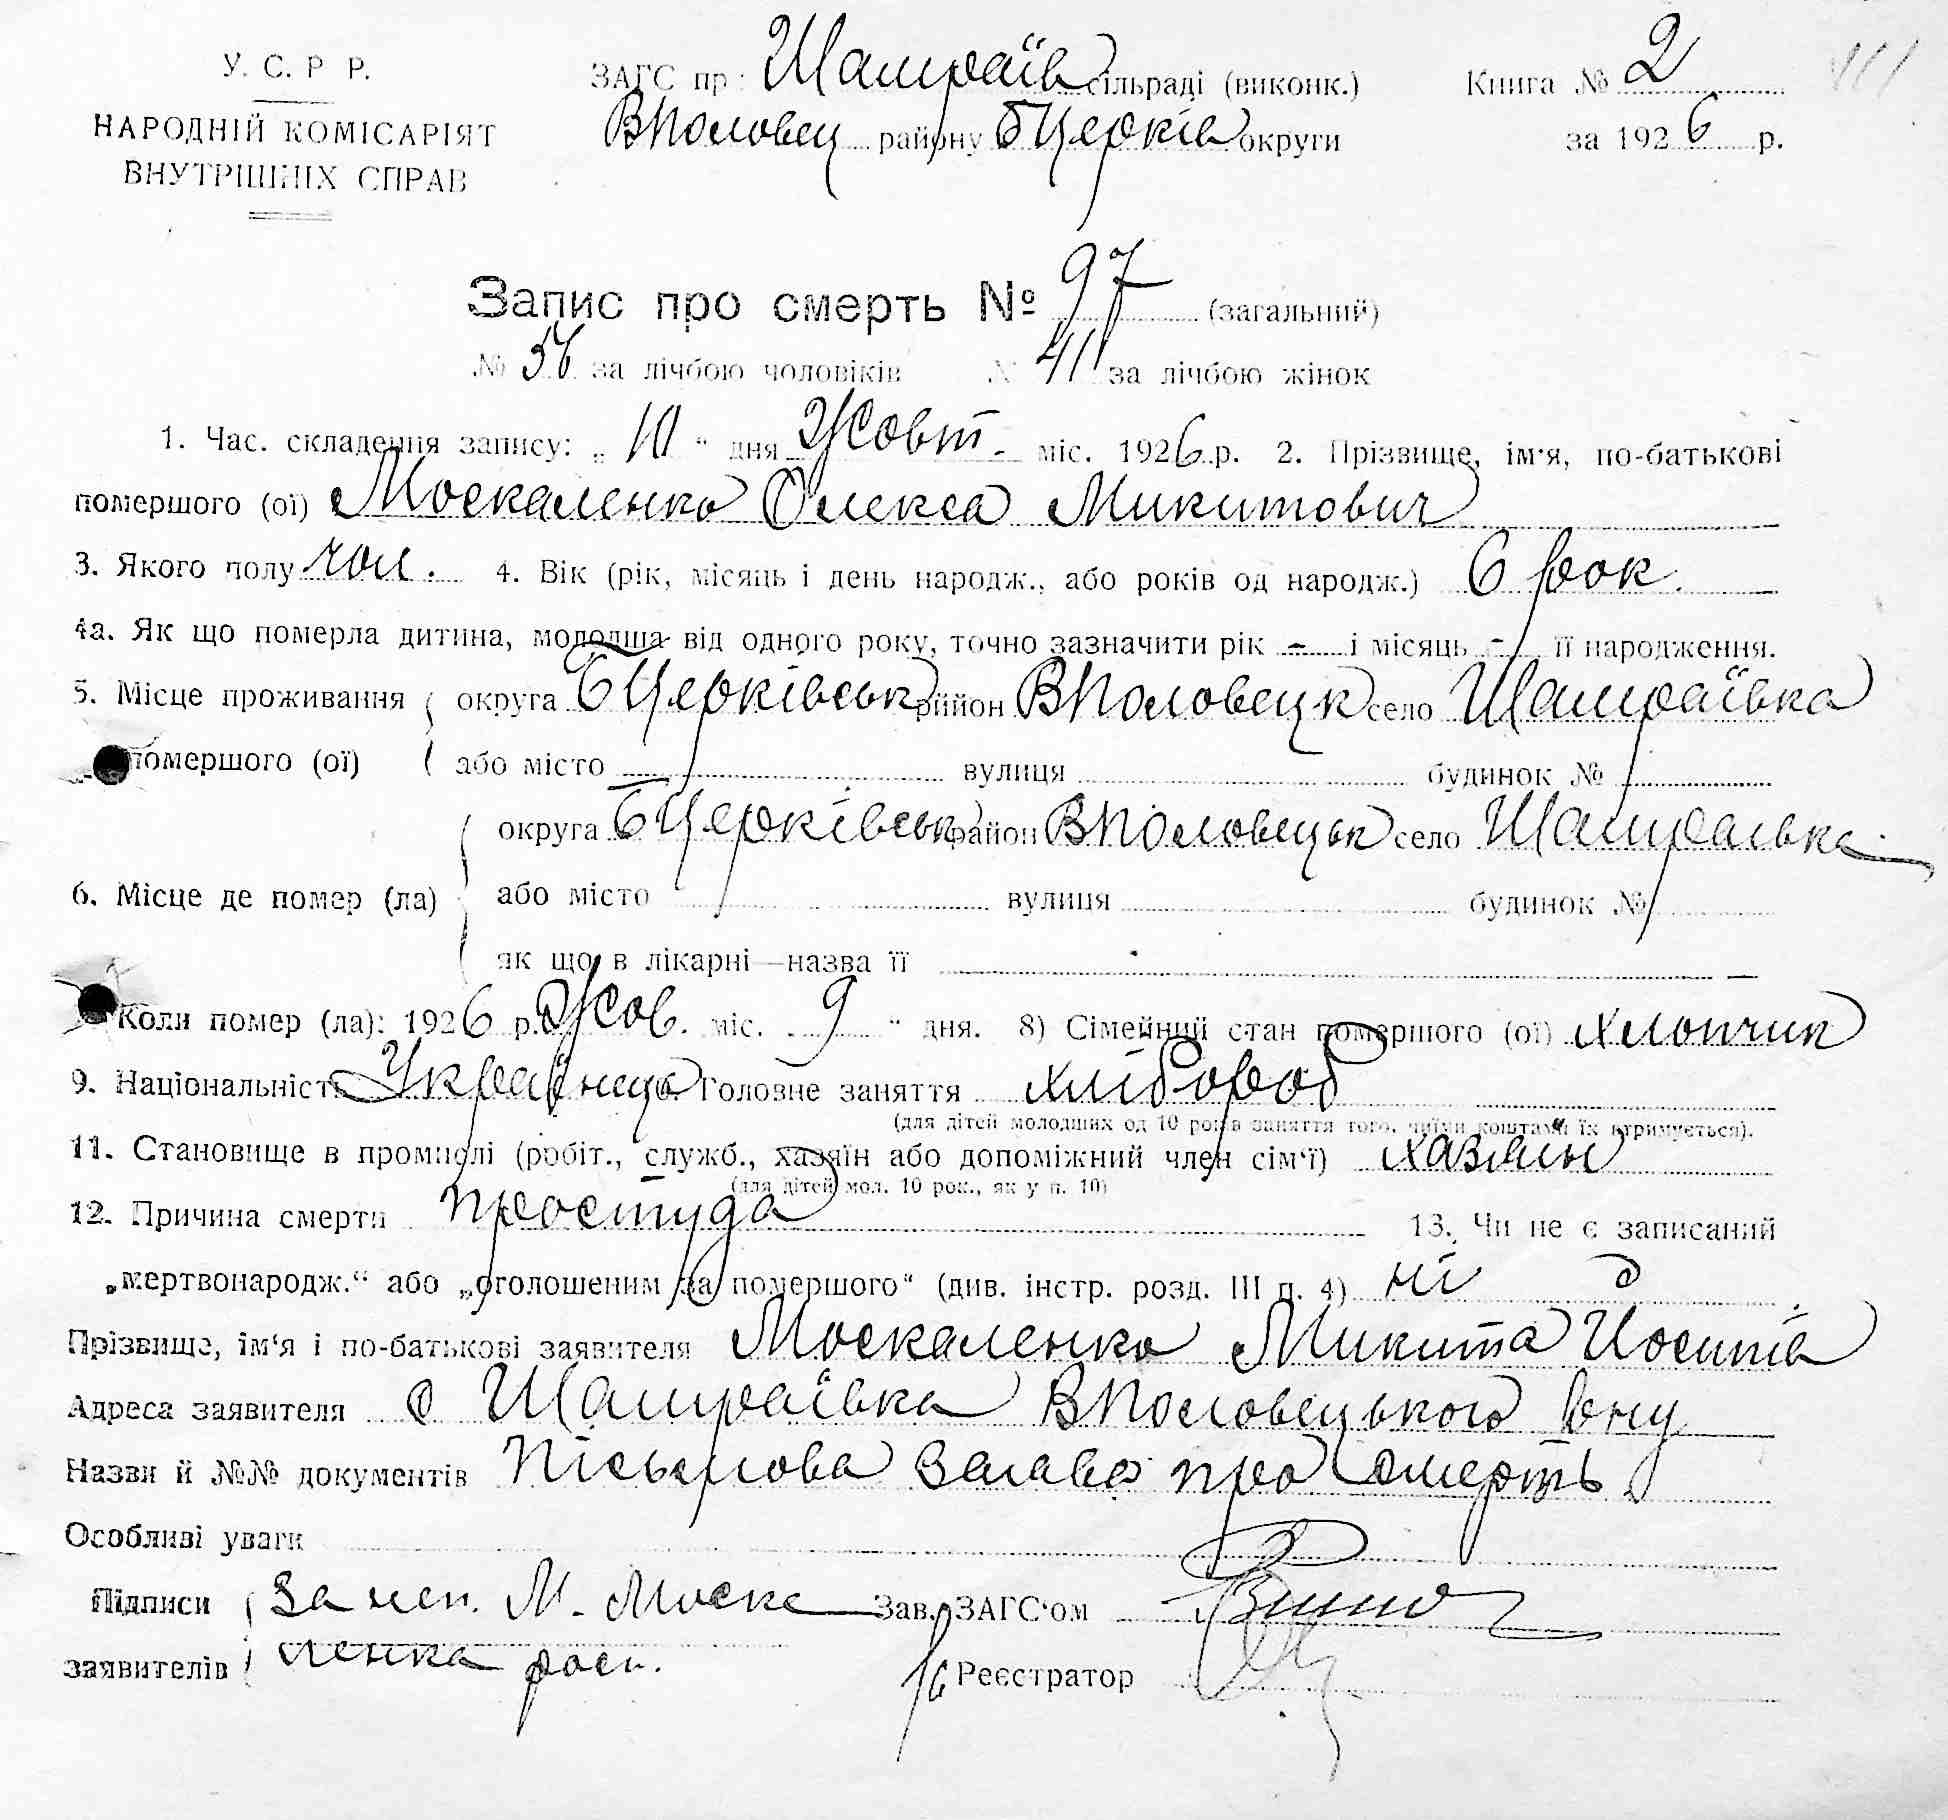 У. С. Р Р.
НАРОДНІЙ КОМІСАРІЯТ
ВНУТРІШНІХ СПРАВ
ЗАГС пр. Шамраїв сільраді (виконк.)
ВПоловец району БЦерків округи
Книга № 2
за 1926 р.
Запис про смерть № 97 (загальний)
№ 56 за лічбою чоловіків № 41 за лічбою жінок
1. Час. складення запису: „ 10 “ дня Жовт. міс. 1926 р. 2. Прізвище, ім'я, по-батькові
помершого (ої) Москаленко Олекса Микитович
3. Якого полу чол. 4. Вік (рік, місяць і день народж., або років од народж.) 6 рок.
4а. Як що померла дитина, молодша від одного року, точно зазначити рік – і місяць – її народження.
5. Місце проживання округа БЦерківськ район ВПоловецк село Шамраївка
помершого (ої) або місто вулиця будинок №
округа БЦерківськ район ВПоловецьк село Шамраївка
6. Місце де помер (ла) або місто вулиця будинок №
як що в лікарні—назва її —
Коли помер (ла): 1926 р. Жов. міс. 9 “ дня. 8) Сімейний стан помершого (ої) хлопчик
9. Національність Українець Головне заняття хлібороб
(для дітей молодших од 10 років заняття того, чиїми коштами їх утримується).
11. Становище в промислі (робіт., служб., хазяїн або допоміжний член сім'ї) хазяїн
(для дітей мол. 10 рок., як у п. 10)
12. Причина смерти простуда 13. Чи не є записаний
„мертвонародж.“ або „оголошеним за помершого“ (див. інстр. розд. III п. 4) ні
Прізвище, ім'я і по-батькові заявителя Москаленко Микита Йосипів
Адреса заявителя с Шамраївка ВПоловецького рну
Назви й №№ документів Пісьмова заява про смерть
Особливі уваги
Підписи За неп. М. Моска Зав. ЗАГС'ом
заявителів ленка росп. Реєстратор